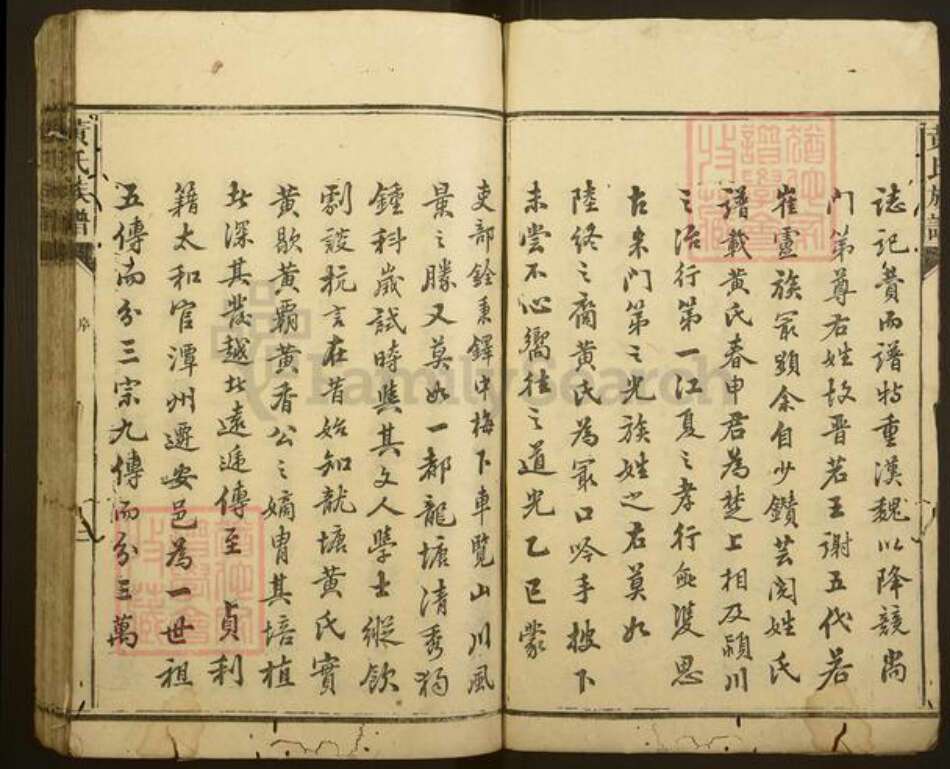 誌記貴而譜特重漢魏以降競尚
門第尊右姓故晉若王謝五代若
崔盧族冣顯余自少鑽芸閱姓氏
譜載黃氏春申君為楚上相及潁川
之治行第一江夏之孝行無雙思
古来門第之光族姓之右莫如
陸終之裔黃氏為冣口吟手披下
未嘗不心嚮往之道光乙巳蒙
吏部銓秉鐸中梅下車覽山川風
景之勝又莫如一都龍塘清秀獨
鍾科歲試時與其文人學士縱飲
劇談抗言在昔始知龍塘黃氏實
黃歇黃霸黃香公之嫡胄其培植
者深其發越者遠遞傳至貞利
籍太和官潭州遷安邑為一世祖
五傳而分三宗九傳而分三萬
黃氏族譜
序
黃氏族譜
FamilySearch